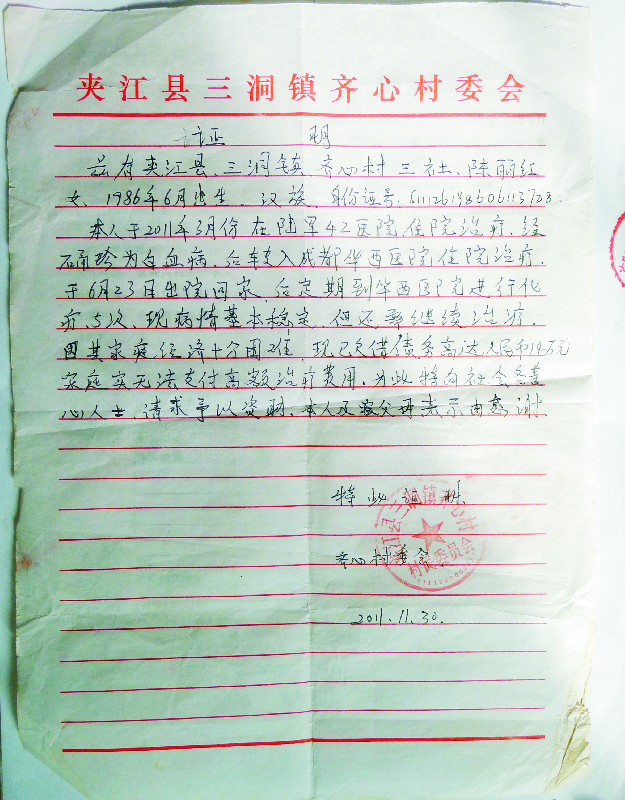 夹江县三洞镇齐心村委会
证 明
兹有夹江县、三洞镇、齐心村三社、陈丽红
女、1986年6月出生、汉族、身份证号、
本人于2011年3月份在陆军42医院、住院治疗、经
确珍为白血病、后转入成都华西医院住院治疗、
于6月23日出院回家、后定期到华西医院进行化
疗5次、现病情基本稳定、但还要继续治疗、
因其家庭经济十分困难、现已欠借债务高达人民币14万元
家庭实无法支付高额治疗费用、为此特向社会各善
心人士、请求予以资助、本人及家父母表示由衷谢
特此证明
齐心村委会
夹江县三洞镇齐心村
村民委员会
2011.11.30.